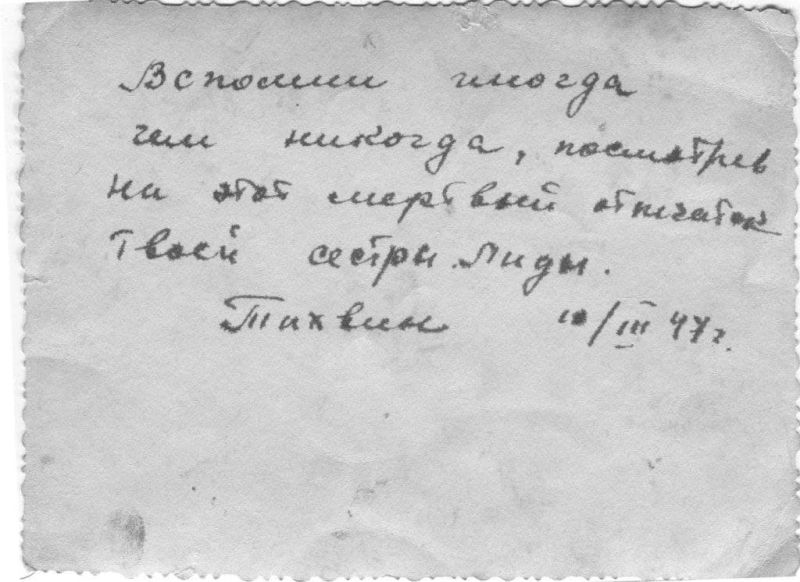 Вспомни иногда
чем никогда, посмотрев
на этот мертвый отпечаток
твоей сестры Лиды.
Тихвин 10/III 47г.